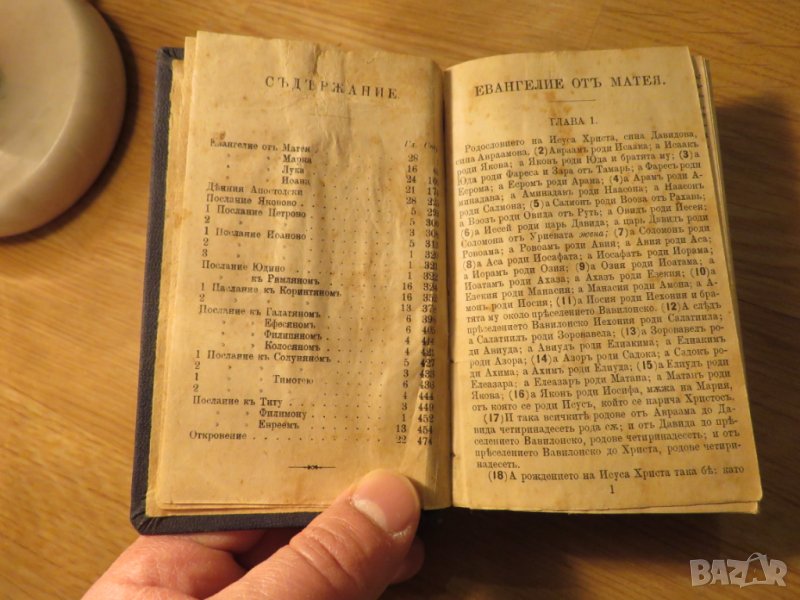 СЪДЪРЖАНИЕ
Гл. Ст.
Евангелие отъ Матея 28
„ Марка 16
„ Лука 24
„ Иоана 21
Дѣяния Апостолски 28
Послание Яковово 5
1 Послание Петрово 5
2 3 308
1 Послание Иоаново 5
2 1 320
3 1 321
Послание Юдино 1 322
„ къ Римляномъ 16 324
1 Послание къ Коринтяномъ 16
2
Послание къ Галатяномъ 6
„ Ефесяномъ 6
„ Филипяномъ 4
„ Колосяномъ 4
1 Послание къ Солуняномъ 5 427
2 3
1 „ Тимотею 6 436
2 4 444
Послание къ Титу 3 449
„ Филимону 1 452
„ Евреемъ 13 454
Откровение 22 474
ЕВАНГЕЛИЕ ОТЪ МАТЕЯ.
ГЛАВА 1.
Родословието на Исуса Христа, сина Давидова,
сина Авраамова. (2) Авраамъ роди Исаака; а Исаакъ
роди Якова; а Яковъ роди Юда и братята му; (3) а
Юда роди Фареса и Зара отъ Тамарь; а Фаресъ роди
Есрома; а Есромъ роди Арама; (4) а Арамъ роди А-
минадава; а Аминадавъ роди Наасона; а Наасонъ
роди Салмона; (5) а Салмонъ роди Вооза отъ Рахавь;
а Воозъ роди Овида отъ Руть; а Овидъ роди Иесея;
(6) а Иесей роди царь Давида; а царь Давидъ роди
Соломона отъ Уриевата жена; (7) а Соломонъ роди
Ровоама; а Ровоамъ роди Авия; а Авия роди Аса;
(8) а Аса роди Иосафата; а Иосафатъ роди Иорама;
а Иорамъ роди Озия; (9) а Озия роди Иоатама; а
Иоатамъ роди Ахаза; а Ахазъ роди Езекия; (10) а
Езекия роди Манасия; а Манасия роди Амона; а А-
монъ роди Иосия; (11) а Иосия роди Иехония и бра-
тята му около прѣселението Вавилонско. (12) А слѣдъ
прѣселението Вавилонско Иехония роди Салатиила;
а Салатиилъ роди Зоровавела; (13) а Зоровавелъ ро-
ди Авиуда; а Авиудъ роди Елиакима; а Елиакимъ
роди Азора; (14) а Азоръ роди Садока; а Садокъ
роди Ахима; а Ахимъ роди Елиуда; (15) а Елиудъ роди
Елеазара; а Елеазаръ роди Матана; а Матанъ роди
Якова; (16) а Яковъ роди Иосифа, мѫжа на Мария,
отъ която се роди Исусъ, който се нарича Христосъ.
(17) И така всичкитѣ родове отъ Авраама до Да-
вида четиринадесеть рода сѫ; и отъ Давида до прѣ-
селението Вавилонско, родове четиринадесеть; и отъ
прѣселението Вавилонско до Христа, родове четири-
надесеть.
(18) А рождението на Исуса Христа така бѣ: като
1
BAZAR